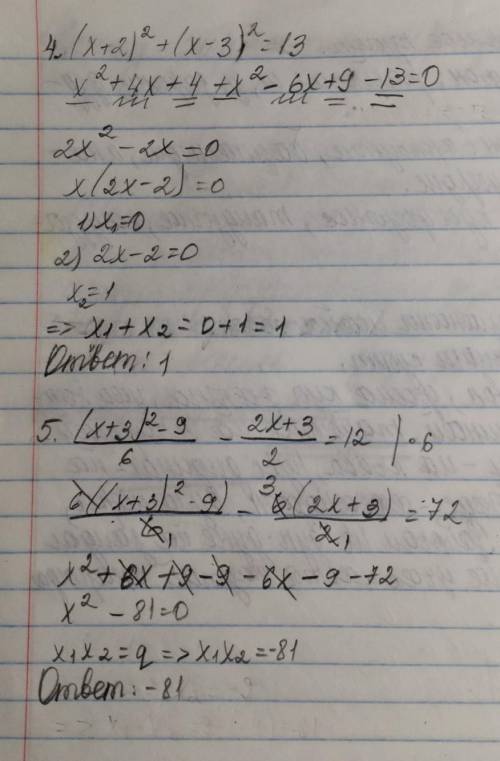 4. (x+2)² + (x-3)² = 13
x² + 4x + 4 + x² - 6x + 9 - 13 = 0
2x² - 2x = 0
x(2x-2) = 0
1) x₁ = 0
2) 2x - 2 = 0
x₂ = 1
=> x₁ + x₂ = 0 + 1 = 1
Ответ: 1
5. ((x+3)² - 9)/6 - (2x+3)/2 = 12 | · 6
6((x+3)² - 9)/6₁ - ³6(2x+3)/2₁ = 72
x² + 6x + 9 - 9 - 6x - 9 - 72
x² - 81 = 0
x₁x₂ = q => x₁x₂ = -81
Ответ: -81